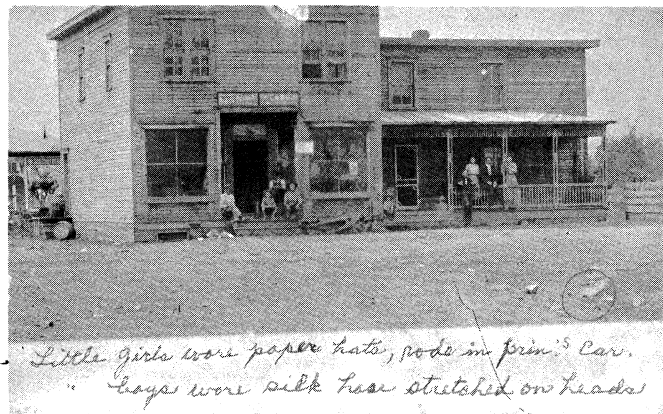 Little girls wore paper hats, rode in prin's car.
" boys wore silk hose stretched on heads